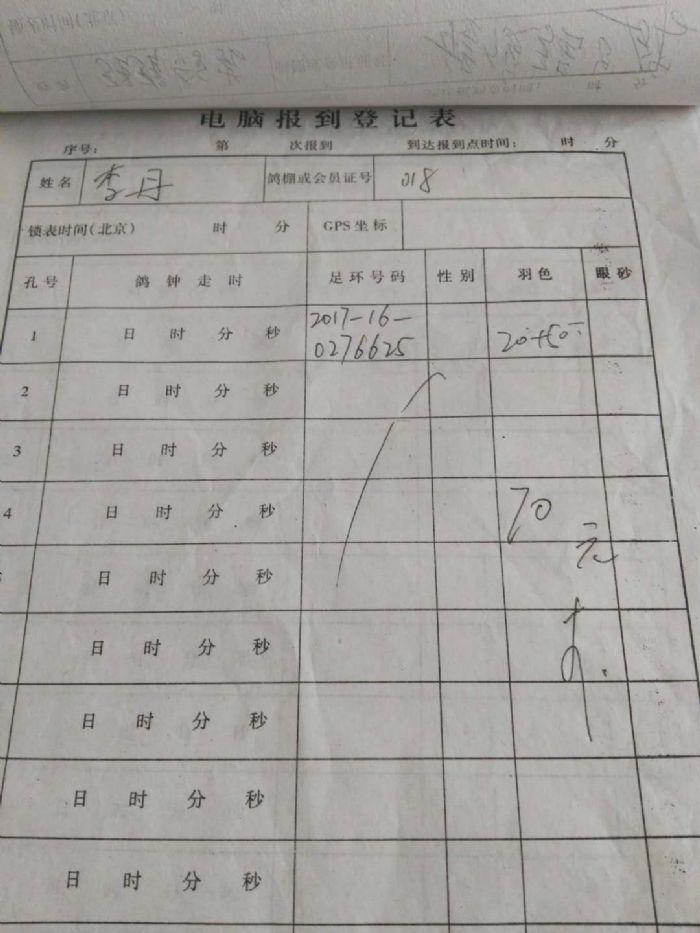 电脑报到登记表
序号： 第 次报到 到达报到点时间： 时 分
姓名 李丹 鸽棚或会员证号 018
锁表时间（北京） 时 分 GPS坐标
孔号 鸽钟走时 足环号码 性别 羽色 眼砂
1 日 时 分 秒 2017-16-0276625 20+50
2 日 时 分 秒
3 日 时 分 秒
4 日 时 分 秒 70
日 时 分 秒 元
日 时 分 秒
日 时 分 秒
日 时 分 秒
日 时 分 秒